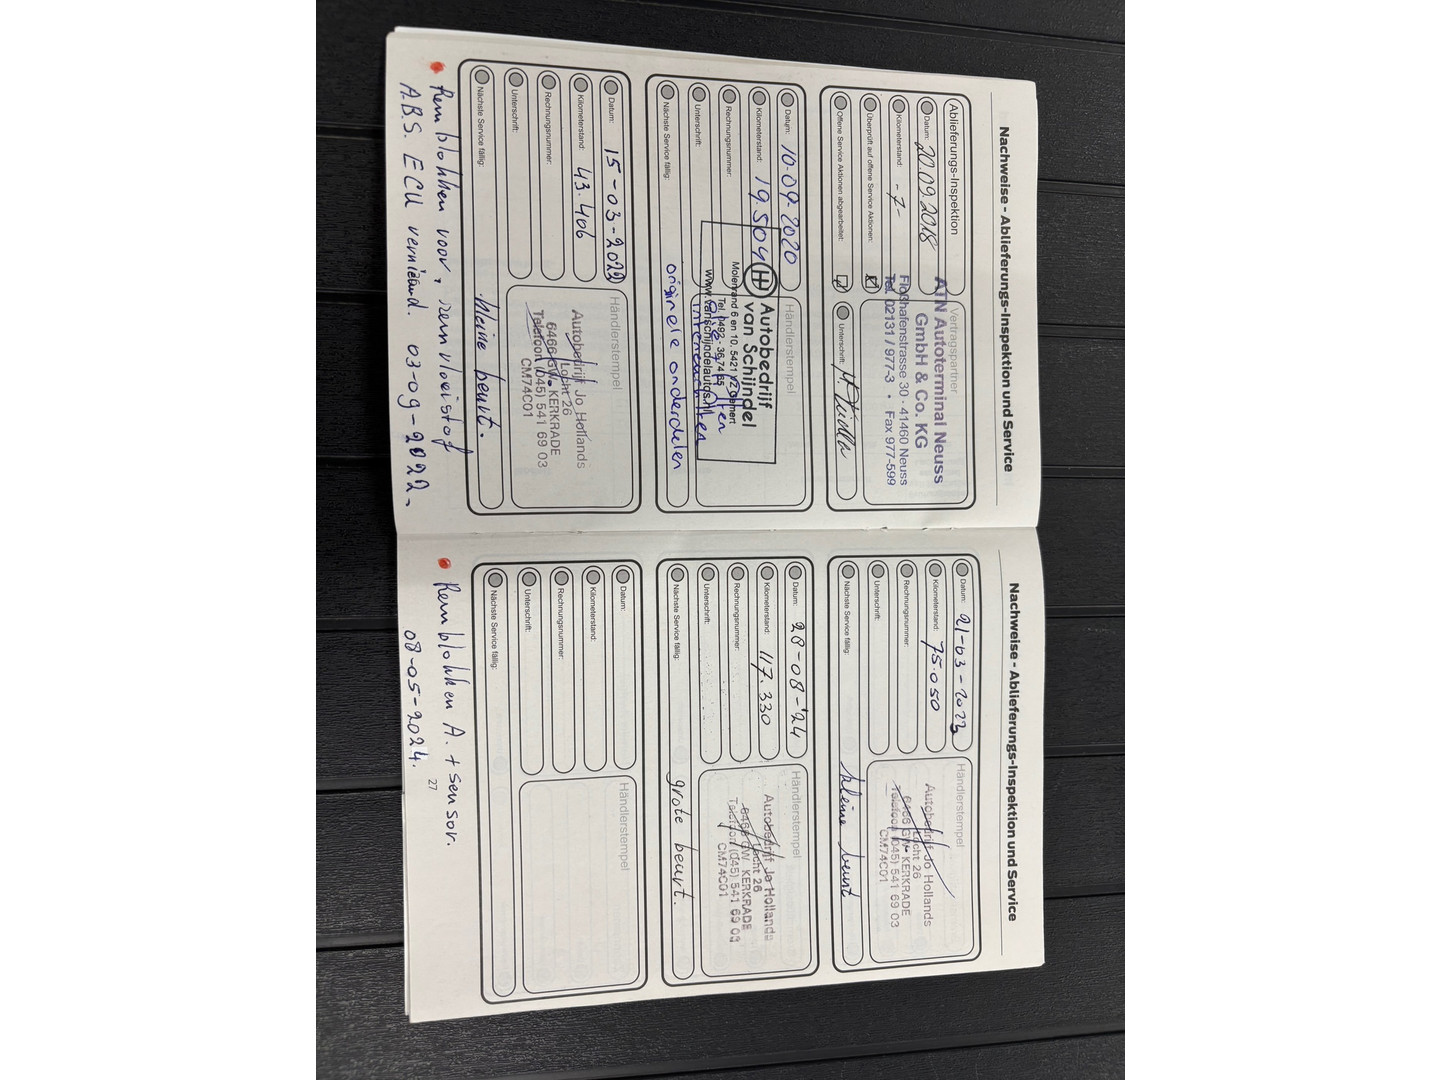 Nachweise - Ablieferungs-Inspektion und Service
Ablieferungs-Inspektion
Datum: 20.09.2018
Kilometerstand: -7-
Überprüft auf offene Service Aktionen:
Offene Service Aktionen abgearbeitet:
Vertragspartner
ATN Autoterminal Neuss
GmbH & Co. KG
Floßhafenstrasse 30 · 41460 Neuss
Tel. 02131 / 977-3 • Fax 977-599
Unterschrift:
Datum: 10.09.2020
Kilometerstand: 19.504
Rechnungsnummer:
Unterschrift:
Nächste Service fällig:
Händlerstempel
Autobedrijf
van Schijndel
Molenrand 6 en 10, 5421 VZ Gemert
Tel. 0492 - 36 74 85
www.vanschijndelautos.nl
originele onderdelen
Datum: 15-03-2022
Kilometerstand: 43.406
Rechnungsnummer:
Unterschrift:
Nächste Service fällig: kleine beurt.
Händlerstempel
Autobedrijf Jo Hollands
Locht 26
6466 GW KERKRADE
Telefoon (045) 541 69 03
CM74C01
Remblokken voor, remvloeistof
A.B.S. ECU vernieuwd. 03-09-2022.
Nachweise - Ablieferungs-Inspektion und Service
Datum: 21-03-2023
Kilometerstand: 75.050
Rechnungsnummer:
Unterschrift:
Nächste Service fällig: kleine beurt
Händlerstempel
Autobedrijf Jo Hollands
Locht 26
6466 GW KERKRADE
Telefoon (045) 541 69 03
CM74C01
Datum: 28-08-'24
Kilometerstand: 117.330
Rechnungsnummer:
Unterschrift:
Nächste Service fällig: grote beurt.
Händlerstempel
Autobedrijf Jo Hollands
Locht 26
6466 GW KERKRADE
Telefoon (045) 541 69 03
CM74C01
Datum:
Kilometerstand:
Rechnungsnummer:
Unterschrift:
Nächste Service fällig:
Händlerstempel
Remblokken A. + sensor.
08-05-2024.
27